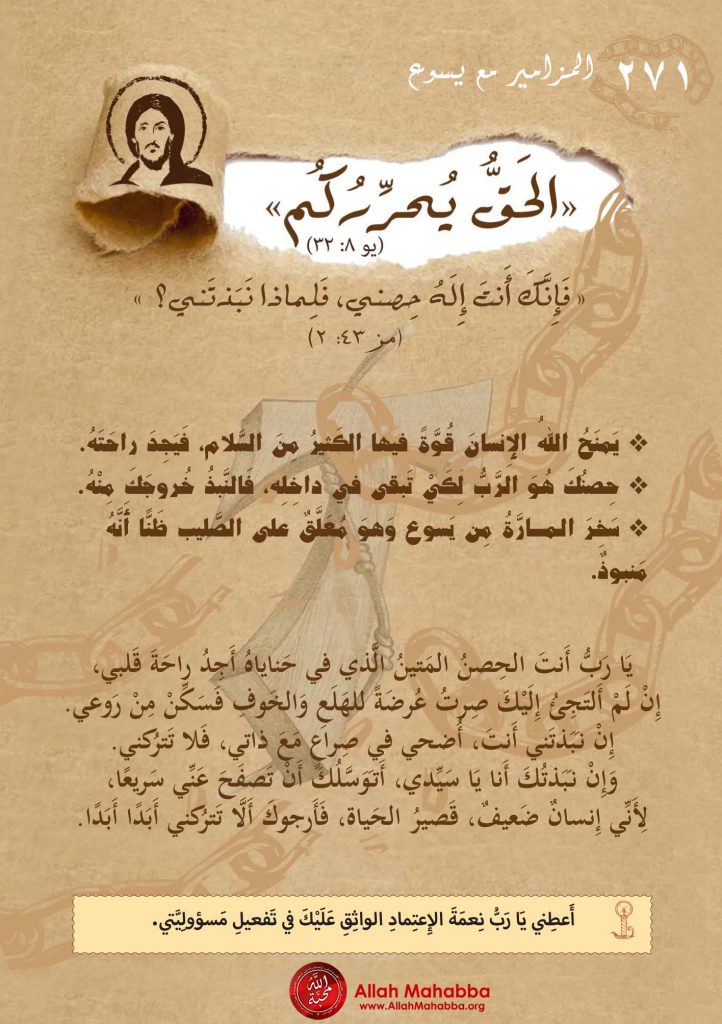 ٢٧١ المزامير مع يسوع
«الحَقُّ يُحرِّرُكُم»
(يو ٨: ٣٢)
« فَإِنَّكَ أَنتَ إِلَهُ حِصني، فَلِماذا نَبَذتَني؟ »
(مز ٤٣: ٢)
❖ يَمنَحُ اللهُ الإِنسانَ قُوَّةً فيها الكَثيرُ مِنَ السَّلام، فَيَجِدَ راحَتَهُ.
❖ حِصنُكَ هُوَ الرَّبُّ لِكَيْ تَبقى في داخِلِهِ، فَالنَّبذُ خُروجُكَ مِنْهُ.
❖ سَخِرَ المـارَّةُ مِن يَسوع وَهوَ مُعَلَّقٌ على الصَّليب ظَنًّا أَنَّهُ
مَنبوذٌ.
يَا رَبُّ أَنتَ الحِصنُ المَتينُ الَّذي في حَناياهُ أَجِدُ راحَةَ قَلبي،
إِنْ لَمْ أَلتَجِئُ إِلَيْكَ صِرتُ عُرضَةً للهَلَعِ وَالخَوفِ فَسَكِّنْ مِنْ رَوعي.
إِنْ نَبَذتَني أَنتَ، أُضحي في صِراعٍ مَعَ ذاتي، فَلا تَترُكني.
وَإِنْ نَبَذتُكَ أَنا يَا سَيِّدي، أَتَوَسَّلُكَ أَنْ تَصفَحَ عَنِّي سَريعًا،
لِأَنِّي إِنسانٌ ضَعيفٌ، قَصيرُ الحَياة، فَأَرجوكَ أَلَّا تَترُكني أَبَدًا أَبَدًا.
أَعطِني يَا رَبُّ نِعمَةَ الإِعتِمادِ الواثِقِ عَلَيْكَ في تَفعيلِ مَسؤولِيَّتي.
الله محبة
Allah Mahabba
www.AllahMahabba.org